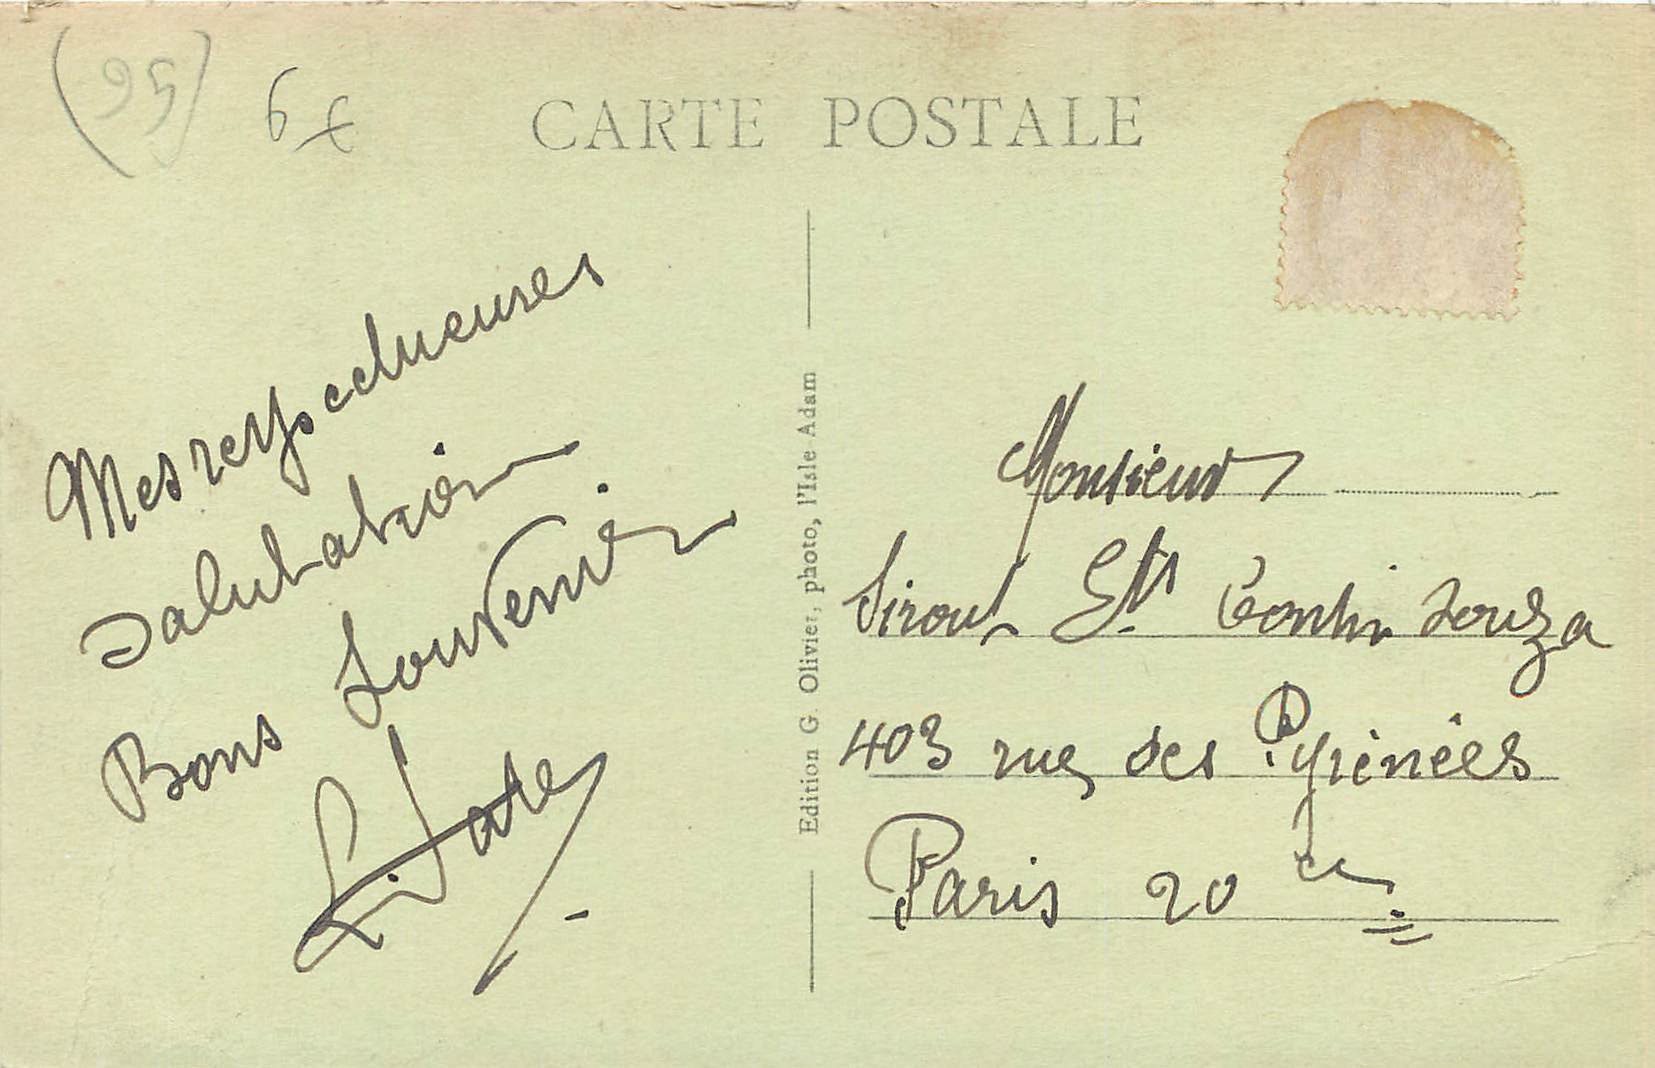 (95)
6f
CARTE POSTALE
Mes respectueuses
Salutation
Bons Souvenir
Edition G. Olivier, photo, l'Isle Adam
Monsieur
Sirout Ets Contin Souza
403 rue des Pyrénées
Paris 20e